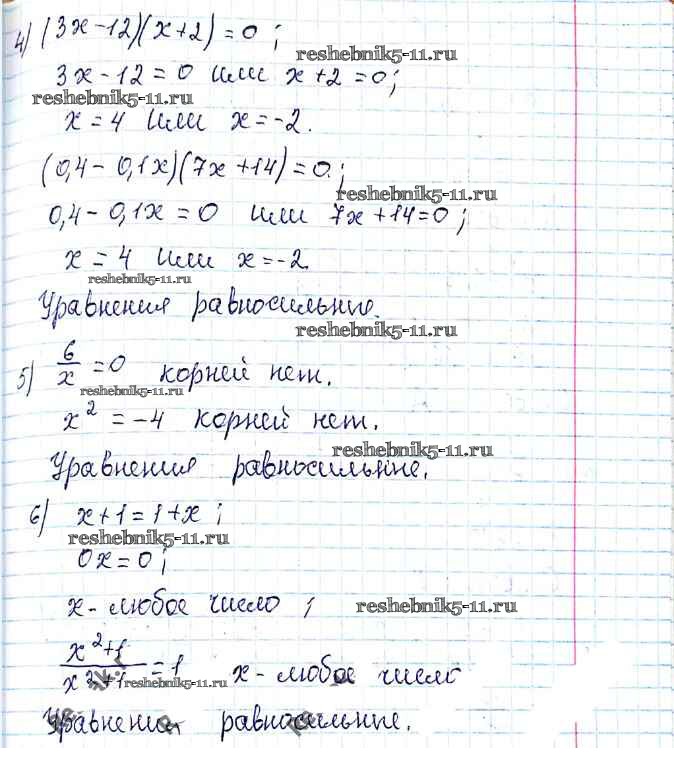 4) (3x-12)(x+2)=0;
reshebnik5-11.ru
3x-12=0 или x+2=0;
reshebnik5-11.ru
x=4 или x=-2.
(0,4-0,1x)(7x+14)=0;
reshebnik5-11.ru
0,4-0,1x=0 или 7x+14=0;
x=4 или x=-2.
reshebnik5-11.ru
Уравнения равносильные.
reshebnik5-11.ru
5) 6/x=0 корней нет.
reshebnik5-11.ru
x²=-4 корней нет.
reshebnik5-11.ru
Уравнения равносильные.
6) x+1=1+x;
reshebnik5-11.ru
0x=0;
x-любое число;
reshebnik5-11.ru
(x²+1)/(x²+1)=1 x-любое число
reshebnik5-11.ru
Уравнения равносильные.